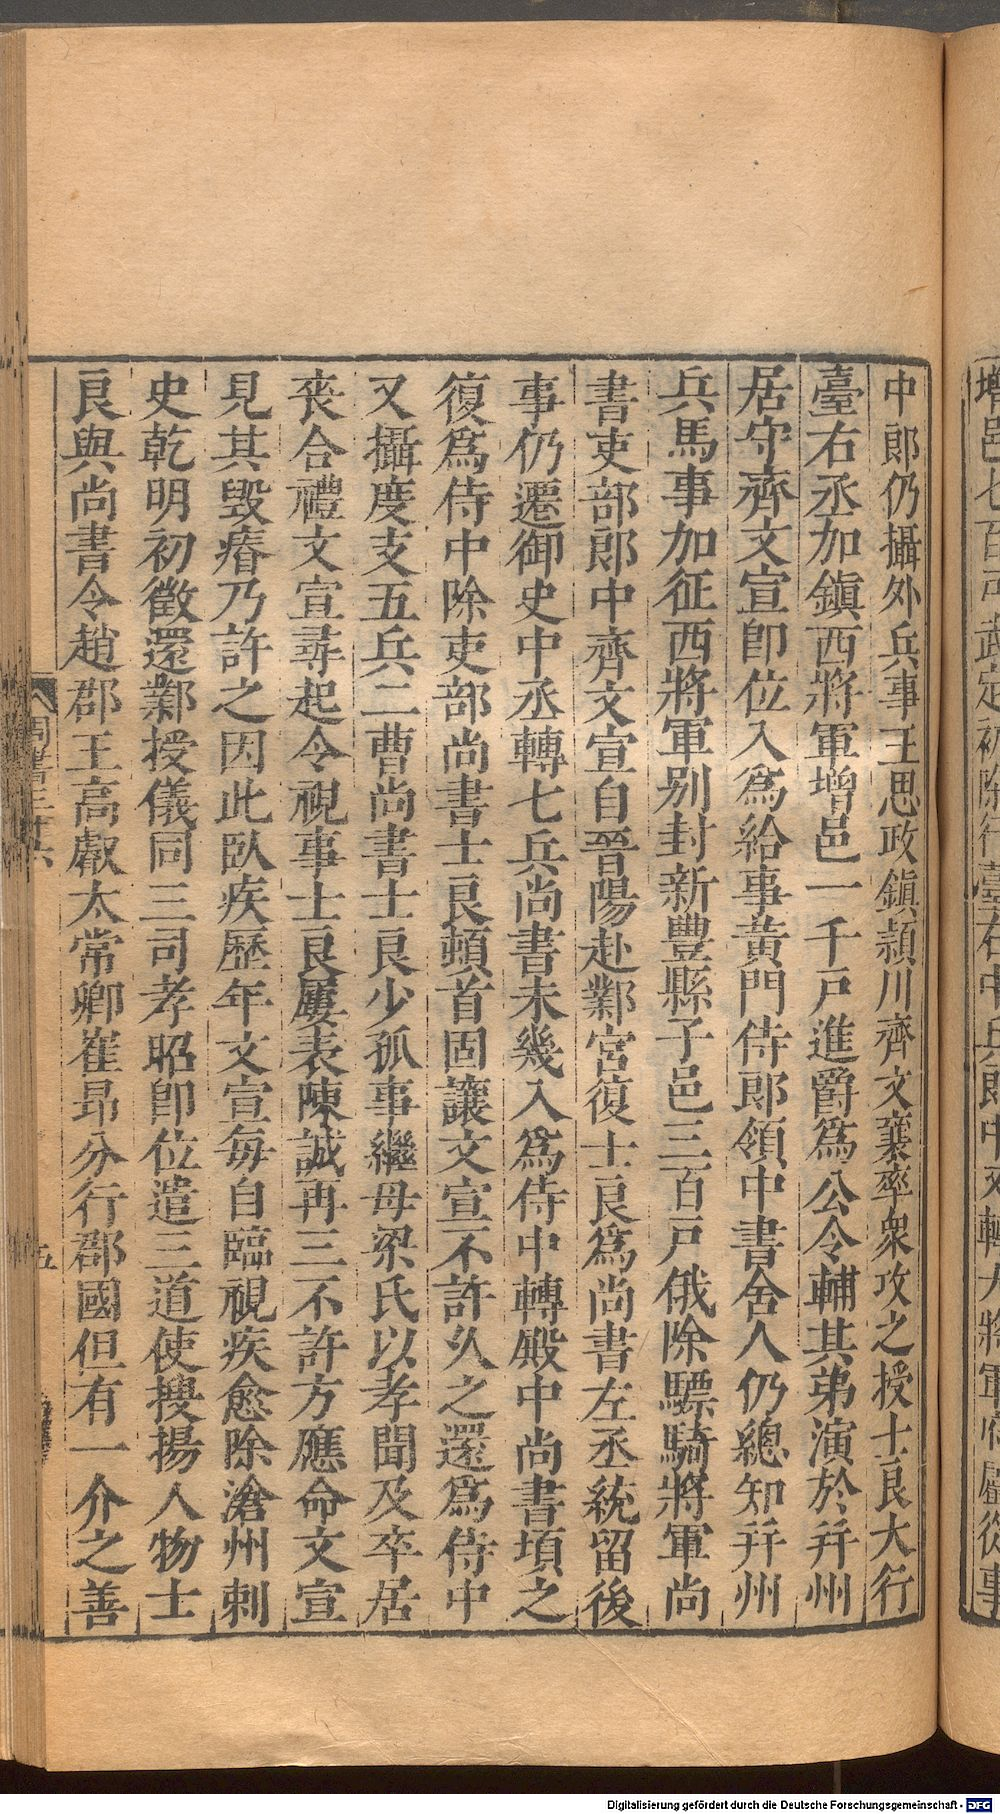 中郎仍攝外兵事王思政鎮潁川齊文襄率衆攻之授士良大行
臺右丞加鎮西將軍增邑一千戸進爵爲公令輔其弟演於幷州
居守齊文宣即位入爲給事黃門侍郎領中書舍人仍總知幷州
兵馬事加征西將軍别封新豐縣子邑三百戸俄除驃騎將軍尚
書吏部郎中齊文宣自晉陽赴鄴宮復士良爲尚書左丞統留後
事仍遷御史中丞轉七兵尚書未幾入爲侍中轉殿中尚書頃之
復爲侍中除吏部尚書士良頓首固讓文宣不許久之還爲侍中
又攝度支五兵二曹尚書士良少孤事繼母梁氏以孝聞及卒居
喪合禮文宣尋起令視事士良屢表陳誠再三不許方應命文宣
見其毀瘠乃許之因此臥疾歷年文宣每自臨視疾愈除滄州刺
史乾明初徵還鄴授儀同三司孝昭即位遣三道使搜揚人物士
良與尚書令趙郡王高叡太常卿崔昂分行郡國但有一介之善
周書三十六
五
Digitalisierung gefördert durch die Deutsche Forschungsgemeinschaft - DFG